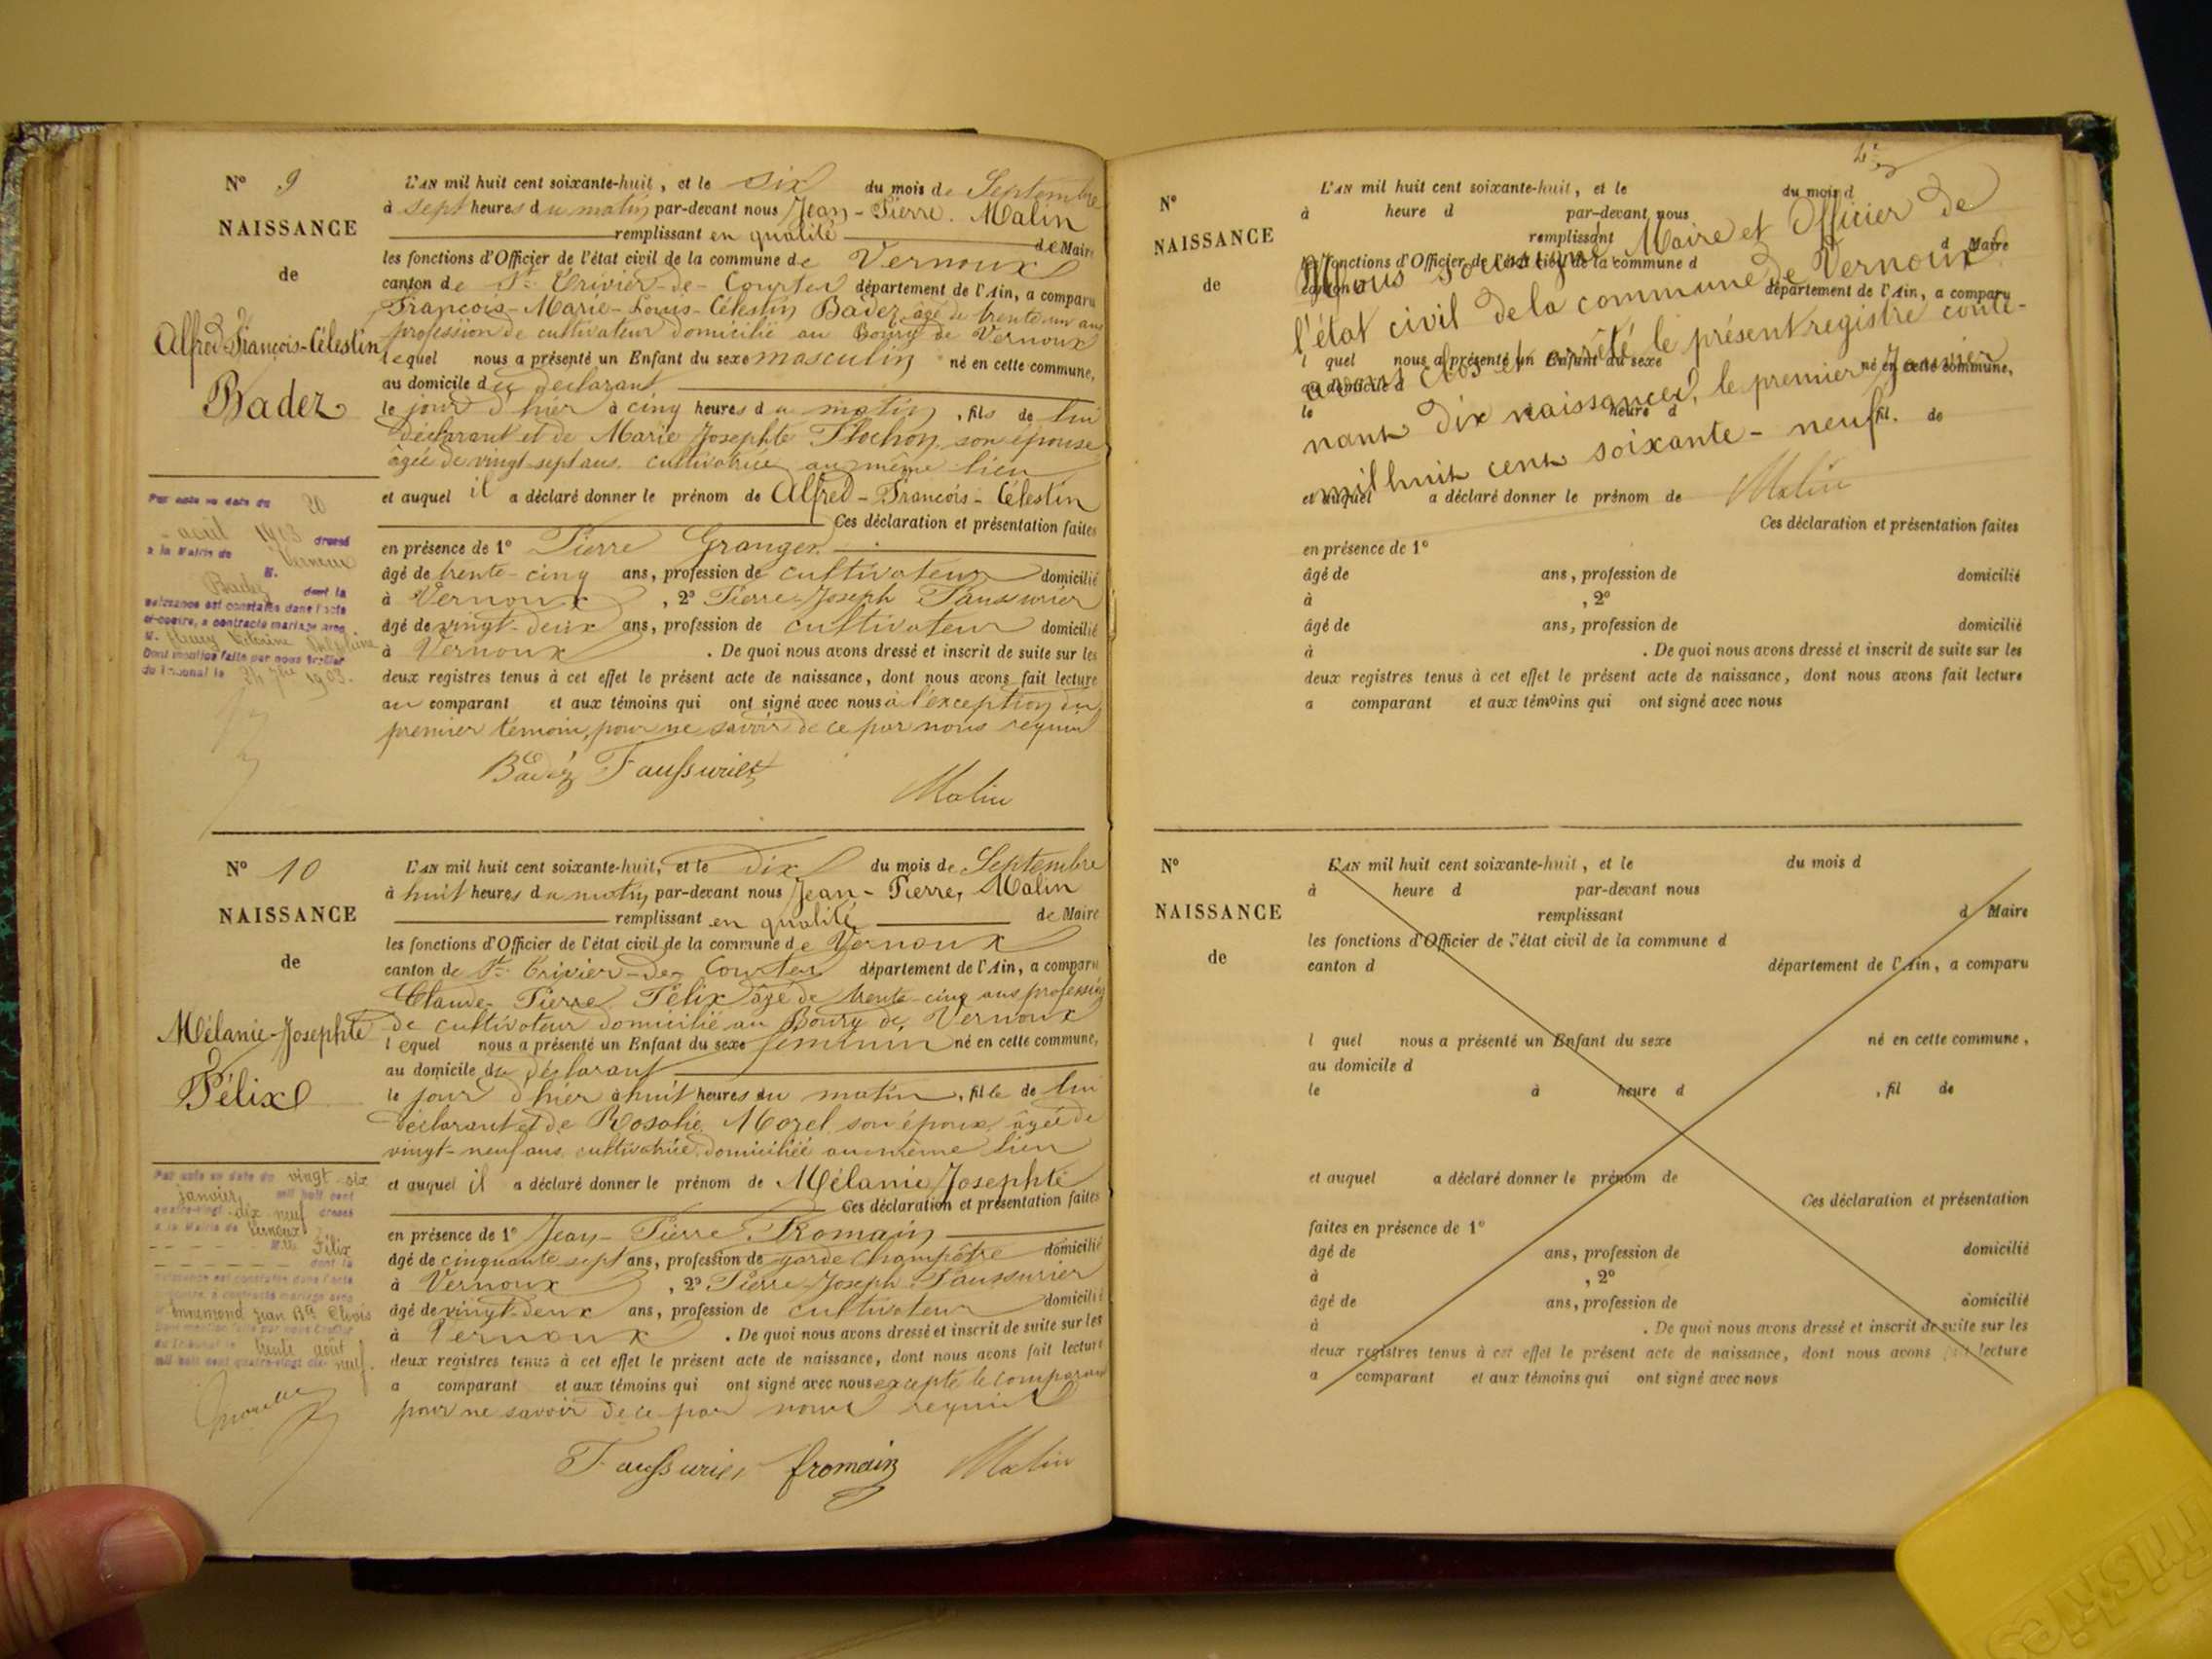 N° 9
NAISSANCE
de
Alfred-François-Célestin
Badez
L'AN mil huit cent soixante-huit, et le six du mois de Septembre
à sept heures du matin par-devant nous Jean-Pierre Malin
remplissant en qualité de Maire
les fonctions d'Officier de l'état civil de la commune de Vernoux
canton de St Trivier-de-Courtes département de l'Ain, a comparu
François-Marie-Louis-Célestin Badez âgé de trente un ans
profession de cultivateur domicilié au Bourg de Vernoux
lequel nous a présenté un Enfant du sexe masculin né en cette commune,
au domicile du déclarant
le jour d'hier à cinq heures du matin, fils de lui
déclarant et de Marie Josephte Plochon son épouse
âgée de vingt sept ans cultivatrice au même lieu
et auquel il a déclaré donner le prénom de Alfred-François-Célestin
Ces déclaration et présentation faites
en présence de 1° Pierre Granger
âgé de trente-cinq ans, profession de cultivateur domicilié
à Vernoux, 2° Pierre-Joseph Faussurier
âgé de vingt-deux ans, profession de cultivateur domicilié
à Vernoux. De quoi nous avons dressé et inscrit de suite sur les
deux registres tenus à cet effet le présent acte de naissance, dont nous avons fait lecture
au comparant et aux témoins qui ont signé avec nous à l'exception du
premier témoin, pour ne savoir de ce par nous requis
Badéz Faussurier
Malin
Par acte en date du 20
août 1903 dressé
à la Mairie de Vernoux
M. Badez dont la
naissance est constatée dans l'acte
ci-contre, a contracté mariage avec
Dont mention faite par nous Greffier
du Tribunal le 24 7bre 1903.
N° 10
NAISSANCE
de
Mélanie-Josephte
Félix
L'AN mil huit cent soixante-huit, et le dix du mois de Septembre
à huit heures du matin par-devant nous Jean-Pierre, Malin
remplissant en qualité de Maire
les fonctions d'Officier de l'état civil de la commune de Vernoux
canton de St Trivier-de-Courtes département de l'Ain, a comparu
Claude-Pierre Félix âgé de trente-cinq ans profession
de cultivateur domicilié au Bourg de Vernoux
lequel nous a présenté un Enfant du sexe féminin né en cette commune,
au domicile du déclarant
le jour d'hier à huit heures du matin, fille de lui
déclarant et de Rosalie Morel son épouse âgée de
vingt-neuf ans cultivatrice domiciliée au même lieu
et auquel il a déclaré donner le prénom de Mélanie Josephte
Ces déclaration et présentation faites
en présence de 1° Jean-Pierre Fromain
âgé de cinquante sept ans, profession de garde champêtre domicilié
à Vernoux, 2° Pierre-Joseph Faussurier
âgé de vingt-deux ans, profession de cultivateur domicilié
à Vernoux. De quoi nous avons dressé et inscrit de suite sur les
deux registres tenus à cet effet le présent acte de naissance, dont nous avons fait lecture
a comparant et aux témoins qui ont signé avec nous excepté le comparant
pour ne savoir de ce par nous requis
Faussurier fromain Malin
Par acte en date du vingt-six
janvier mil huit cent
quatre-vingt dix neuf dressé
à la Mairie de Vernoux
Mlle Félix
dont la
naissance est constatée dans l'acte
ci-contre, a contracté mariage avec
Jean Bte Clovis
Dont mention faite par nous Greffier
du Tribunal le trente août
mil huit cent quatre-vingt dix neuf.
N°
NAISSANCE
de
L'AN mil huit cent soixante-huit, et le du mois d
à heure d par-devant nous
remplissant d Maire
les fonctions d'Officier de l'état civil de la commune d
canton d département de l'Ain, a comparu
l quel nous a présenté un Enfant du sexe né en cette commune,
au domicile d
le heure d fil de
et auquel a déclaré donner le prénom de
Nous soussigné Maire et Officier de
l'état civil de la commune de Vernoux
avons clos et arrêté le présent registre conte-
nant dix naissances, le premier Janvier
mil huit cent soixante-neuf.
Malin
Ces déclaration et présentation faites
en présence de 1°
âgé de ans, profession de domicilié
à , 2°
âgé de ans, profession de domicilié
à . De quoi nous avons dressé et inscrit de suite sur les
deux registres tenus à cet effet le présent acte de naissance, dont nous avons fait lecture
a comparant et aux témoins qui ont signé avec nous
N°
NAISSANCE
de
L'AN mil huit cent soixante-huit, et le du mois d
à heure d par-devant nous
remplissant d Maire
les fonctions d'Officier de l'état civil de la commune d
canton d département de l'Ain, a comparu
l quel nous a présenté un Enfant du sexe né en cette commune,
au domicile d
le à heure d , fil de
et auquel a déclaré donner le prénom de
Ces déclaration et présentation
faites en présence de 1°
âgé de ans, profession de domicilié
à , 2°
âgé de ans, profession de domicilié
à . De quoi nous avons dressé et inscrit de suite sur les
deux registres tenus à cet effet le présent acte de naissance, dont nous avons fait lecture
a comparant et aux témoins qui ont signé avec nous